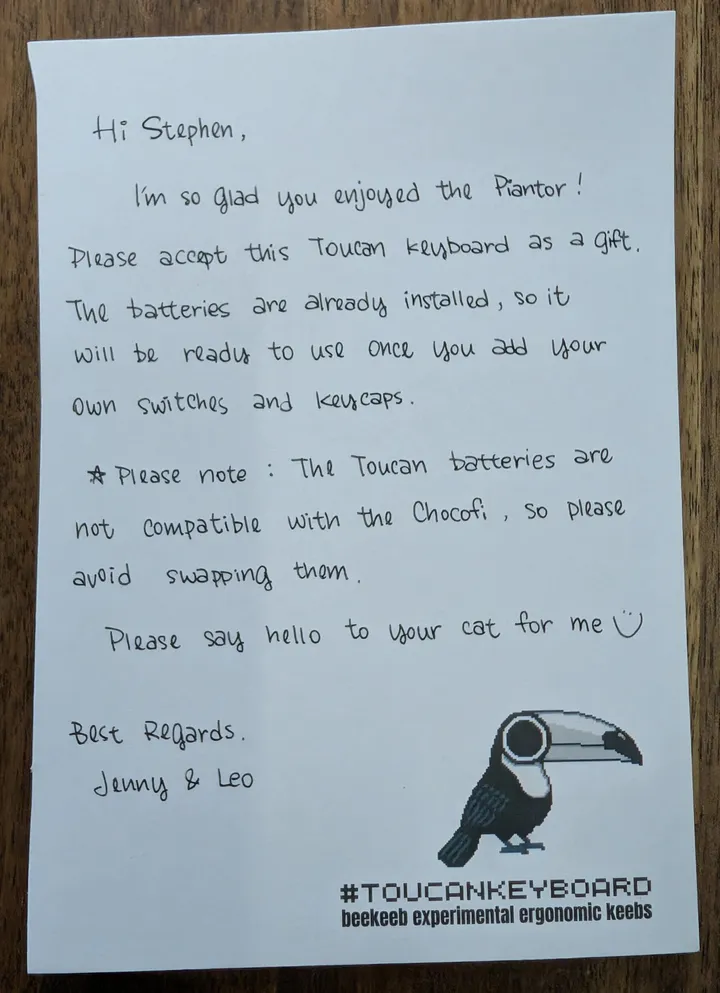 Hi Stephen,
I'm so glad you enjoyed the Piantor!
Please accept this Toucan keyboard as a gift.
The batteries are already installed, so it
will be ready to use once you add your
own switches and keycaps.
☆ Please note : The Toucan batteries are
not compatible with the Chocofi, so please
avoid swapping them.
Please say hello to your cat for me
Best Regards.
Jenny & Leo
#TOUCANKEYBOARD
beekeeb experimental ergonomic keebs